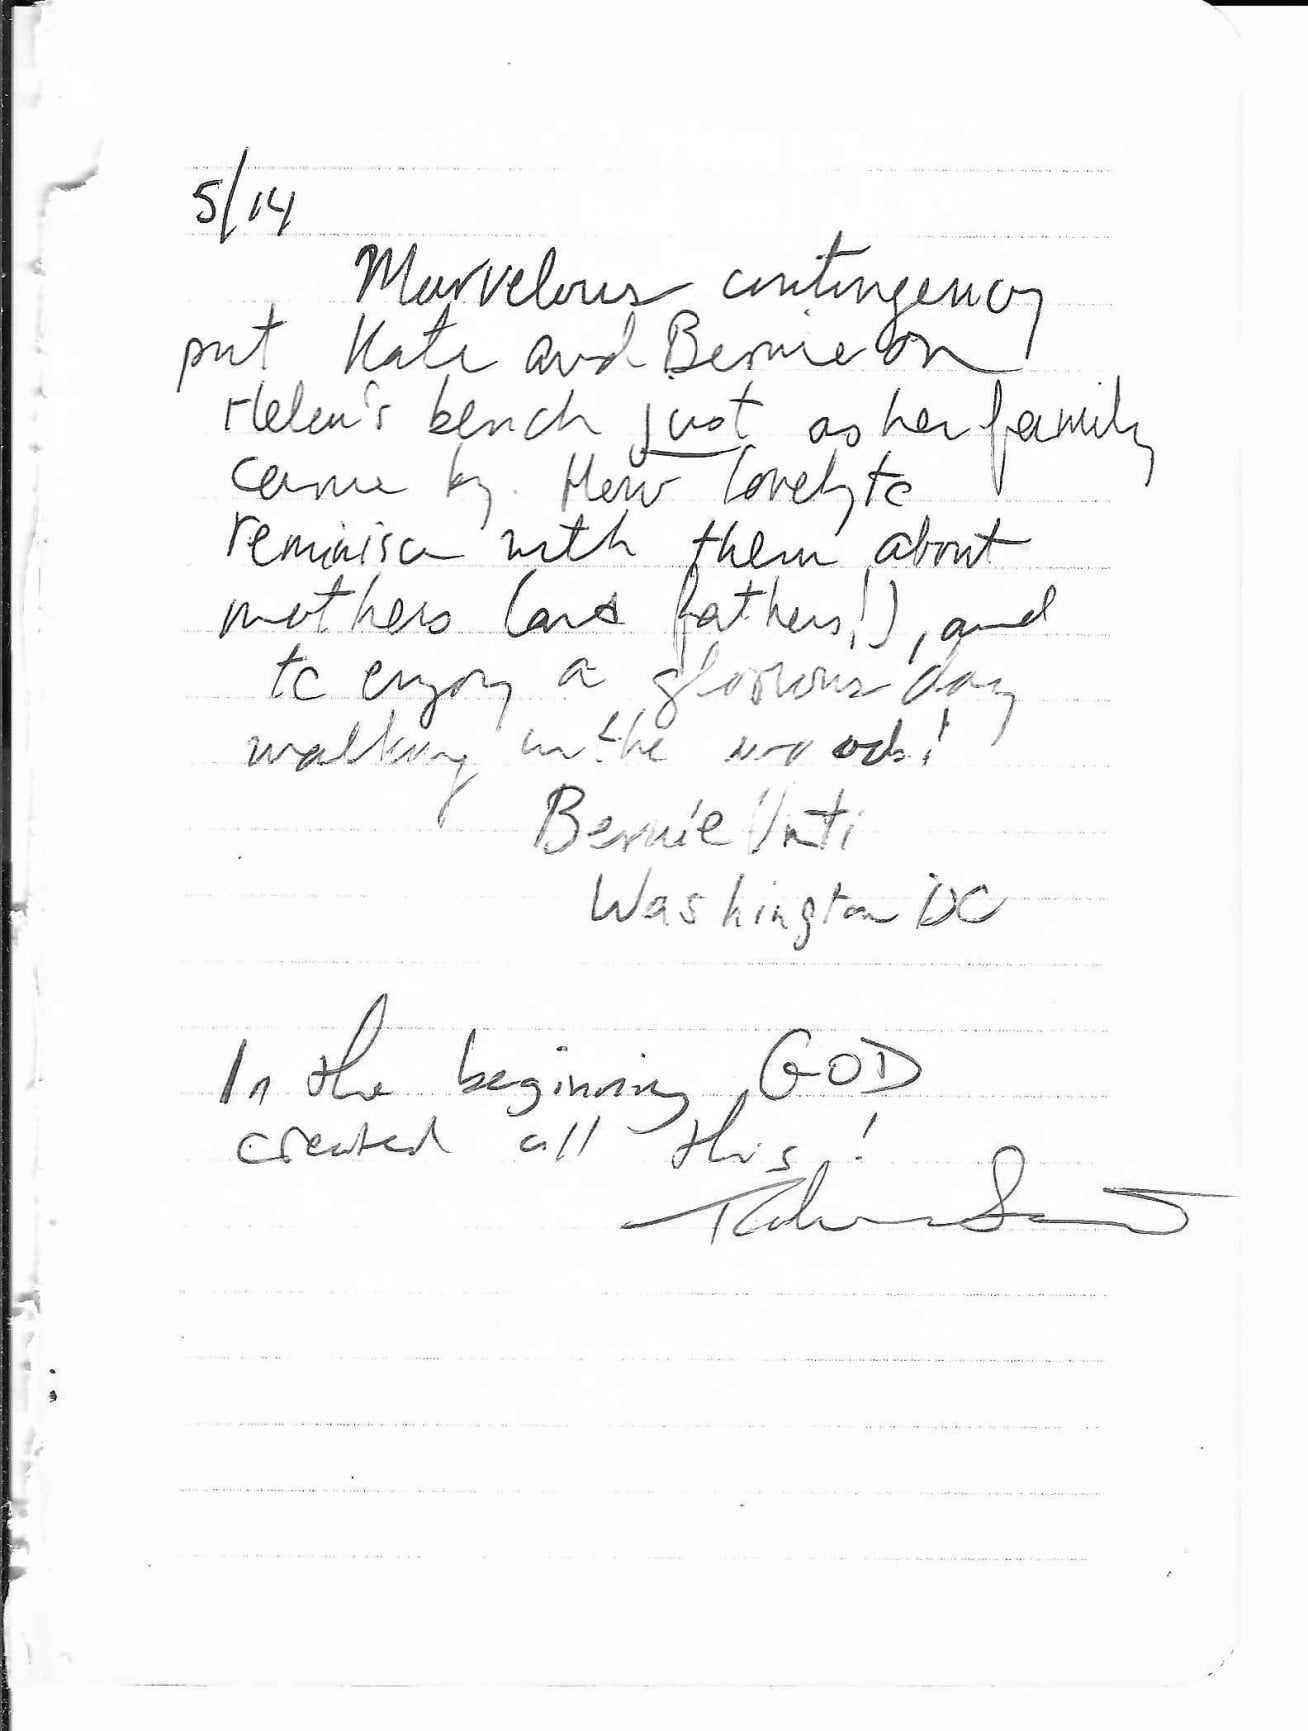 5/14
Marvelous contingency
put Kate and Bernie on
Helen's bench just as her family
came by. How lovely to
reminisce with them about
mothers (and fathers!), and
to enjoy a glorious day
walking in the woods!
Bernie Unti
Washington DC
In the beginning GOD
created all this!